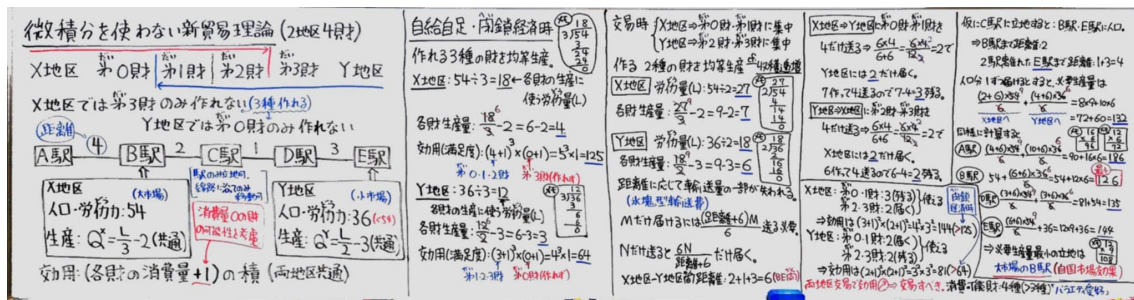 微積分を使わない新貿易理論(2地区4財)
X地区 第0財 第1財 第2財 第3財 Y地区
X地区では第3財のみ作れない(3種作れる)
Y地区では第0財のみ作れない
距離
A駅 4 B駅 2 C駅 1 D駅 3 E駅
X地区
(大市場)
人口・労働力:54
生産:Qˣ=L/3-2(共通)
消費量0の財
の可能性も考慮
Y地区
(小市場)
人口・労働力:36(<54)
生産:Qʸ=L/2-3(共通)
効用:(各財の消費量+1)の積(両地区共通)
自給自足・閉鎖経済時
作れる3種の財を均等生産。
X地区:54÷3=18←各財の生産に
使う労働量(L)
各財生産量:18/3-2=6-2=4
効用(満足度):(4+1)³×(0+1)=5³×1=125
第0・1・2財 第3財(作れず)
Y地区:36÷3=12
各財の生産に使う労働量(L)
各財生産量:12/2-3=6-3=3
効用(満足度):(3+1)³×(0+1)=4³×1=64
第1・2・3財 第0財(作れず)
交易時 X地区⇒第0財・第1財に集中
Y地区⇒第2財・第3財に集中
作る2種の財を均等生産
X地区 労働量(L):54÷2=27
各財生産量:27/3-2=9-2=7
Y地区 労働量(L):36÷2=18
各財生産量:18/2-3=9-3=6
距離に応じて輸送量の一部が失われる。
(氷塊型輸送費)
Mだけ届けるには(距離+6)M/6送る必要
Nだけ送ると6N/距離+6だけ届く。
X地区-Y地区間距離:2+1+3=6
X地区⇒Y地区に第0財・第1財を
4だけ送る⇒6×4/6+6=6×4/12=2で
Y地区には2だけ届く。
7作って4送るので7-4=3残る。
Y地区⇒X地区に第2財・第3財を
4だけ送る⇒6×4/6+6=6×4/12=2で
X地区には2だけ届く。
6作って4送るので6-4=2残る。
X地区:第0・1財:3(残る)
第2・3財:2(届く) 使える
⇒効用は(3+1)²×(2+1)²=4²×3²=144(>125)
Y地区:第0・1財:2(届く)
第2・3財:2(残る) 使える
⇒効用は(2+1)²×(2+1)²=3²×3²=81(>64)
閉鎖経済時
両地区交易で効用⇒交易すべき。消費可能財:4種(>3種)"バラエティ愛好"
仮にC駅に立地すると:B駅・E駅に人口。
⇒B駅まで距離:2
E駅まで距離:1+3=4
人口分1ずつ届けるとすると、必要生産量は
(2+6)×54/6+(4+6)×36/6=8×9+10×6
X地区へ Y地区へ =72+60=132
同様に計算すると
A駅 (4+6)×54/6+(10+6)×36/6=90+16×6=186
B駅 54+(6+6)×36/6=54+12×6=126
D駅 (3+6)×54/6+(3+6)×36/6=81+54=135
E駅 (6+6)×54/6+36=12×9+36=144
⇒必要生産量最小の立地は
大市場のB駅(自国市場効果)